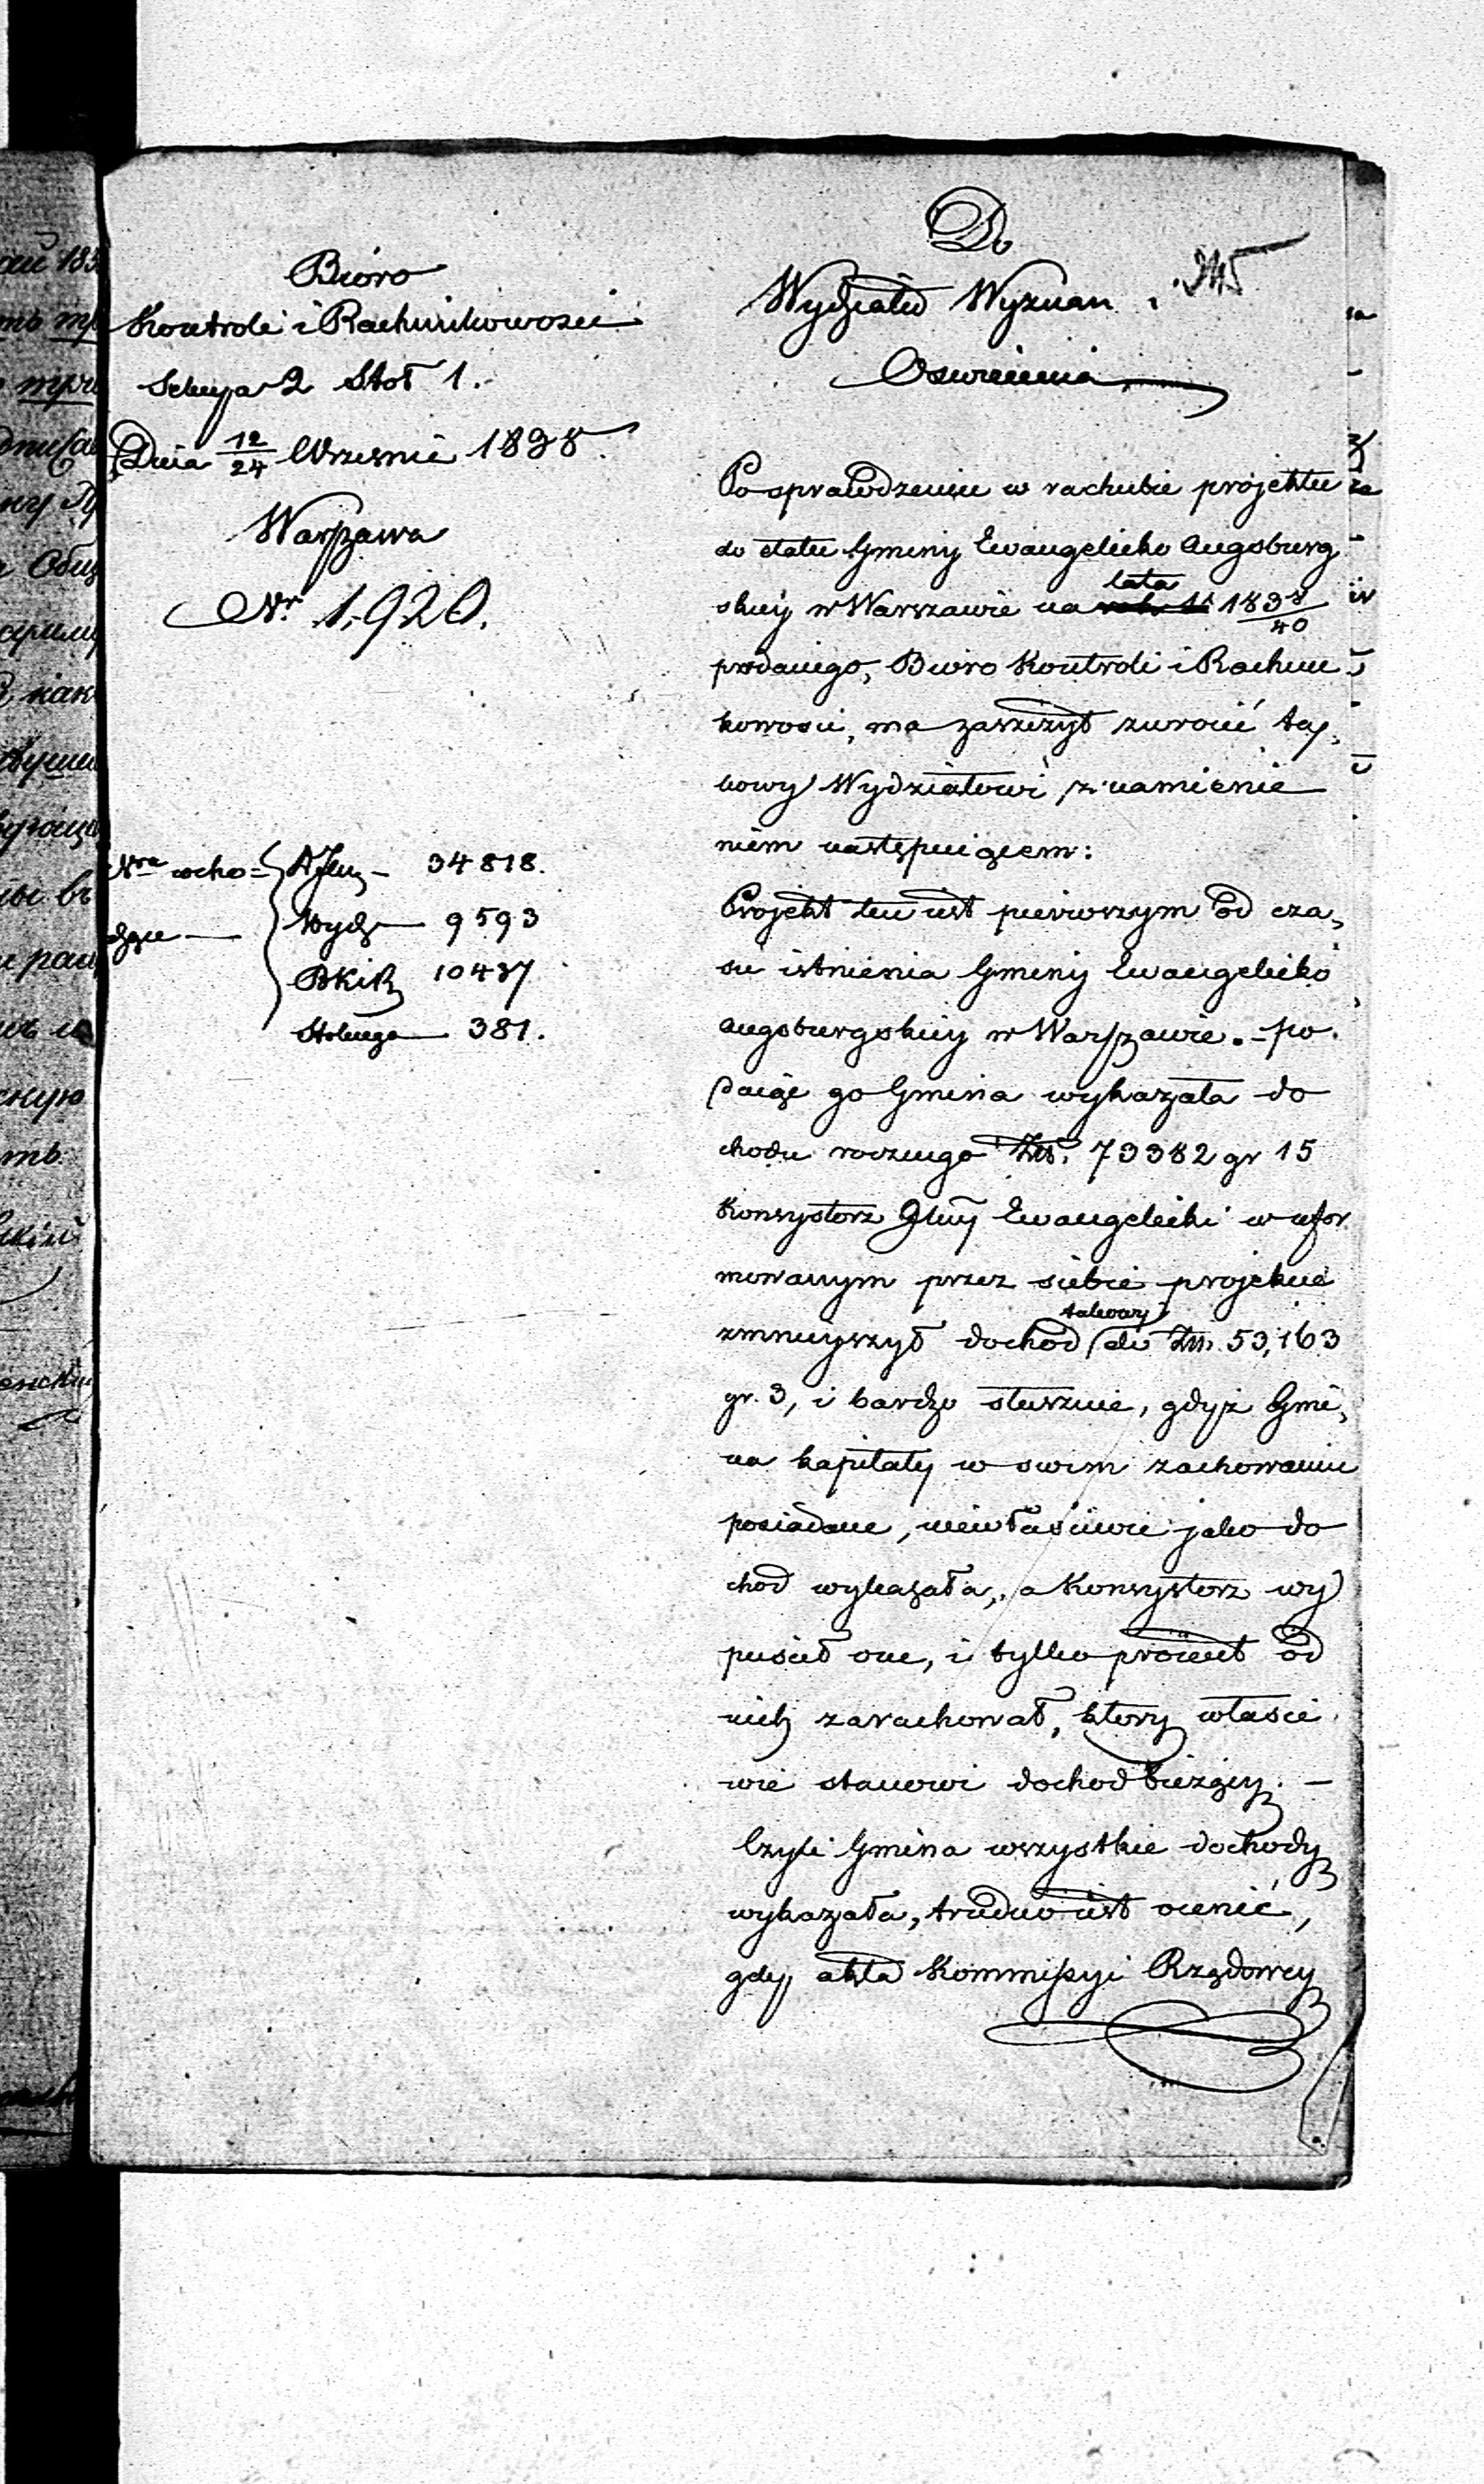 Bióro
Kontroli i Rachunkowosci
Sekcya 2 Stoł 1.
Dnia 12/24 Wrzesnia 1838.
Warszawa
Nr. 1,920.
Nra wcho= 34818.
dzące Wydz 9593
BKiR 10437
Stołowego 381.
Do
Wydziału Wyznan i 245
Oswiecenia
Po sprawdzeniu w rachubie projektu
do etatu Gminy Ewangelicko Augsburg
skiej w Warszawie na lata 1838/40
podanego, Biuro Kontroli i Rachun
kowosci, ma zaszczyt zwrocić ta,
kowy Wydziałowi, z namienie
niem następuiącem:
Projekt ten iest pierwszym od cza,
su istnienia Gminy Ewangelicko
Augsburgskiey w Warszawie. – po.
daiąc go Gmina wykazała do
chodu rocznego Złł. 73382 gr 15
Konsystorz Glny Ewangelicki w ufor
mowanym przez siebie projekcie
zmnieyszył dochod takowy do Złł. 53,163
gr. 3, i bardzo słusznie, gdyż Gmi,
na kapitały w swim zachowaniu
posiadane, niewłasciwie jako do
chod wykazała, a Konsystorz wy
puscił one, i tylko procent od
nich zarachował, ktory własci
wie stanowi dochod bieżący. –
Czyli Gmina wszystkie dochody
wykazała, trudno iest ocenić,
gdy akta Kommissyi Rządowey